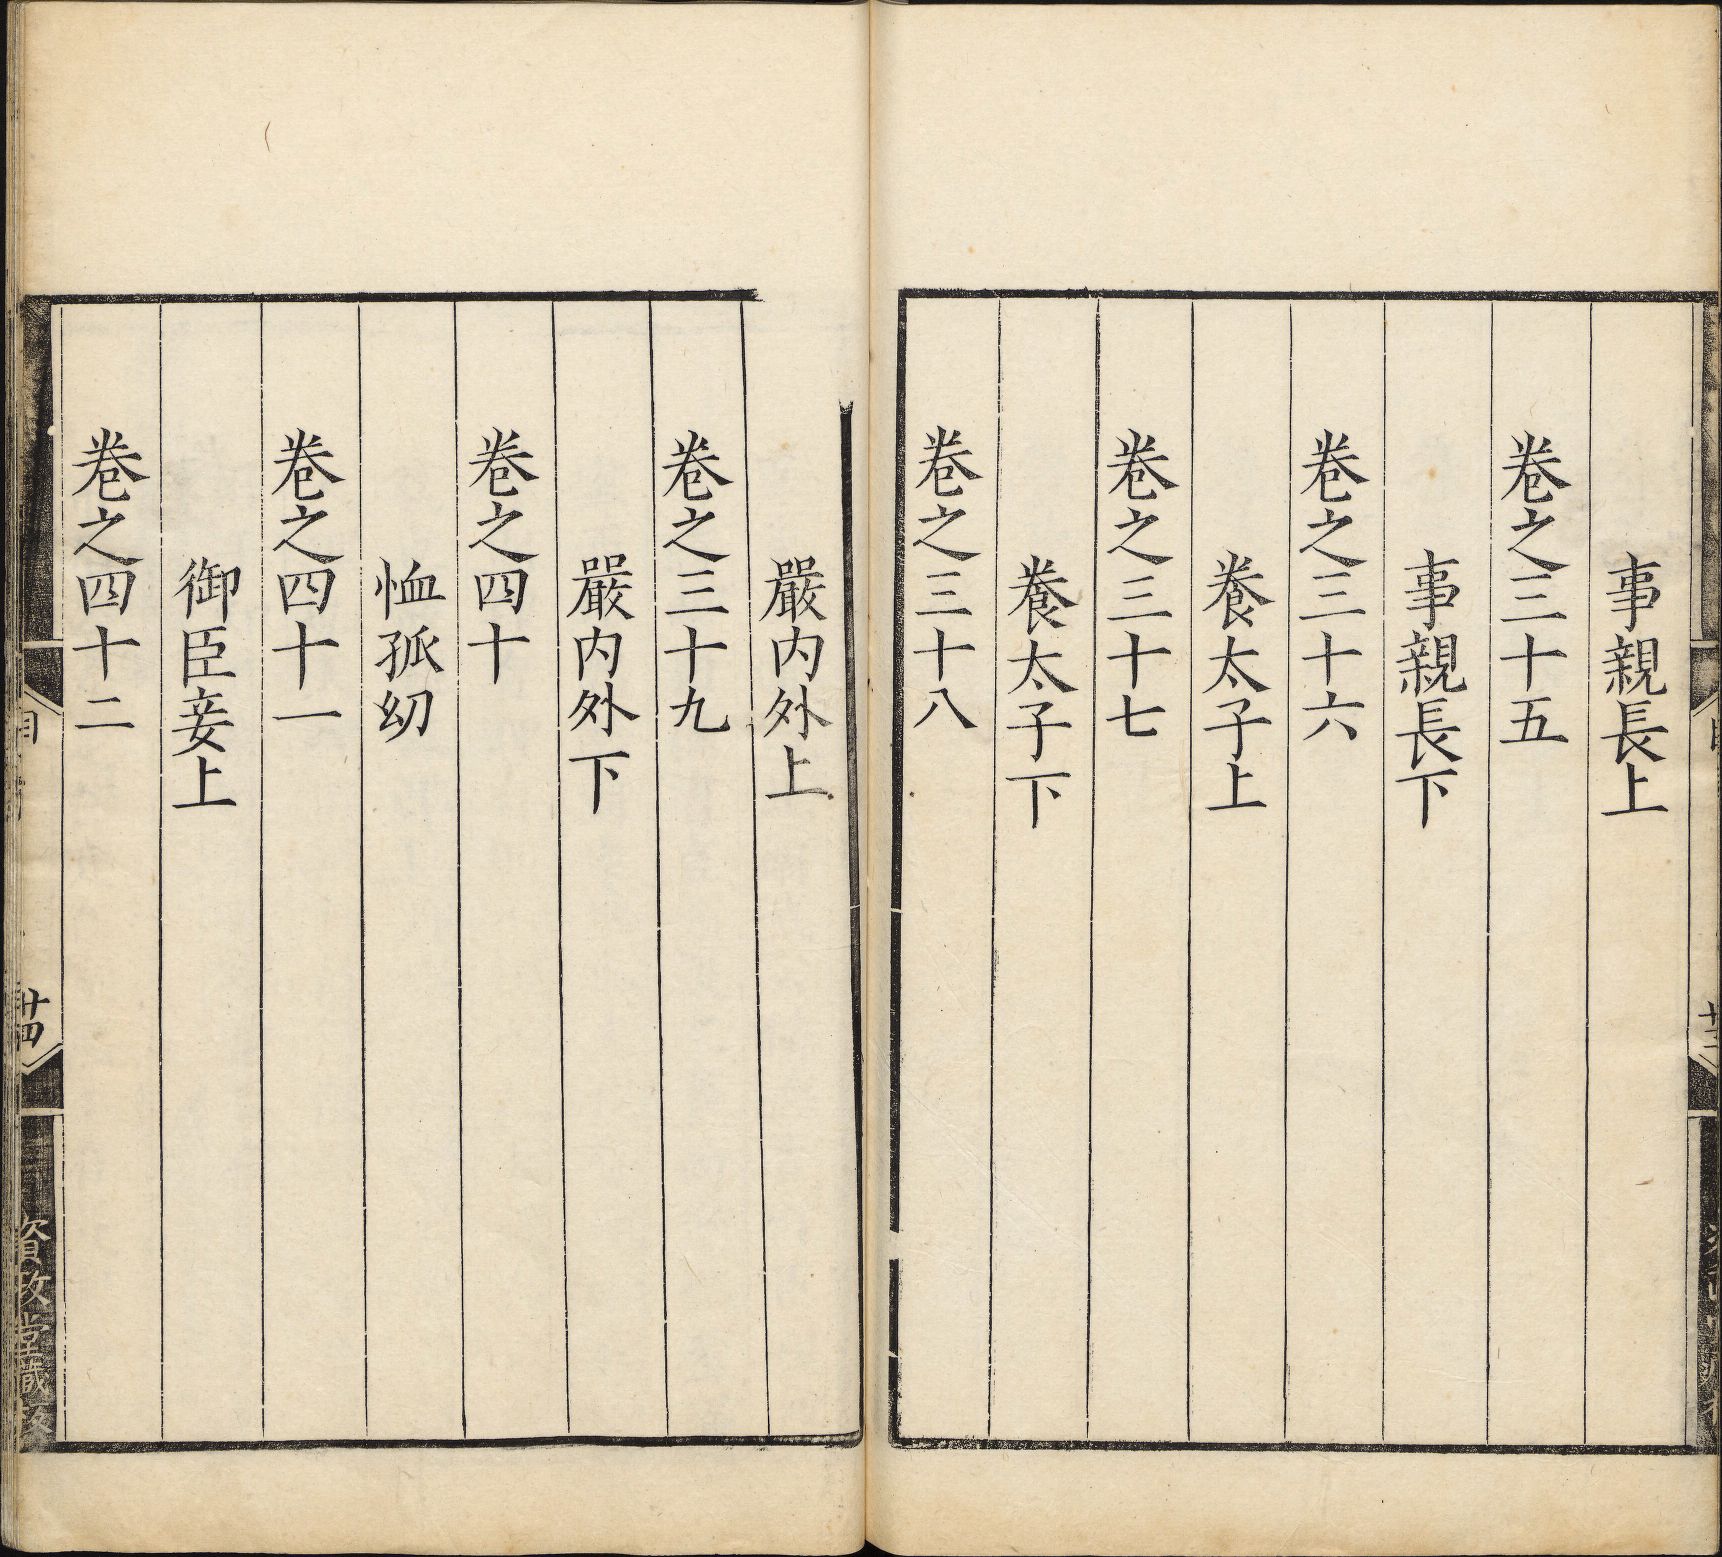 事親長上
卷之三十五
事親長下
卷之三十六
養太子上
卷之三十七
養太子下
卷之三十八
嚴内外上
卷之三十九
嚴内外下
卷之四十
恤孤幼
卷之四十一
御臣妾上
卷之四十二
目
廿四
資政堂藏